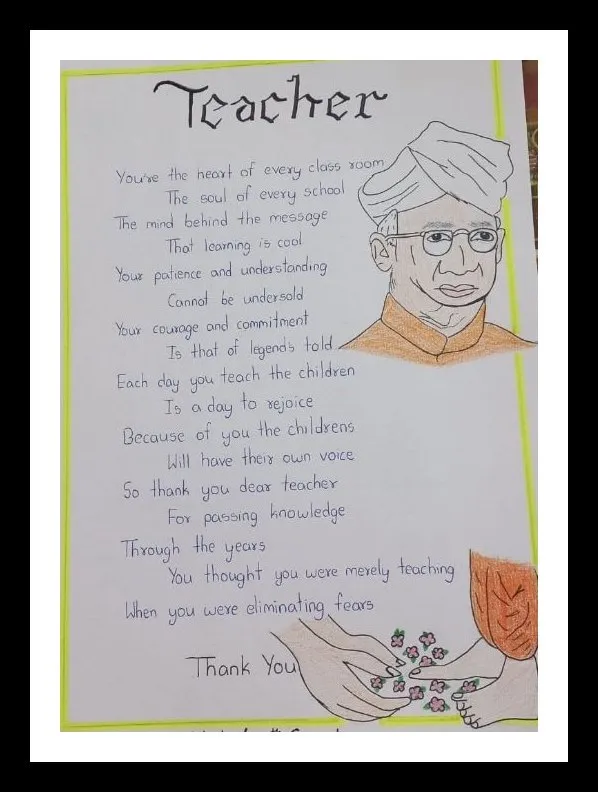 Teacher
You're the heart of every class room
The soul of every school
The mind behind the message
That learning is cool
Your patience and understanding
Cannot be undersold
Your courage and commitment
Is that of legends told
Each day you teach the children
Is a day to rejoice
Because of you the childrens
Will have their own voice
So thank you dear teacher
For passing knowledge
Through the years
You thought you were merely teaching
When you were eliminating fears
Thank You